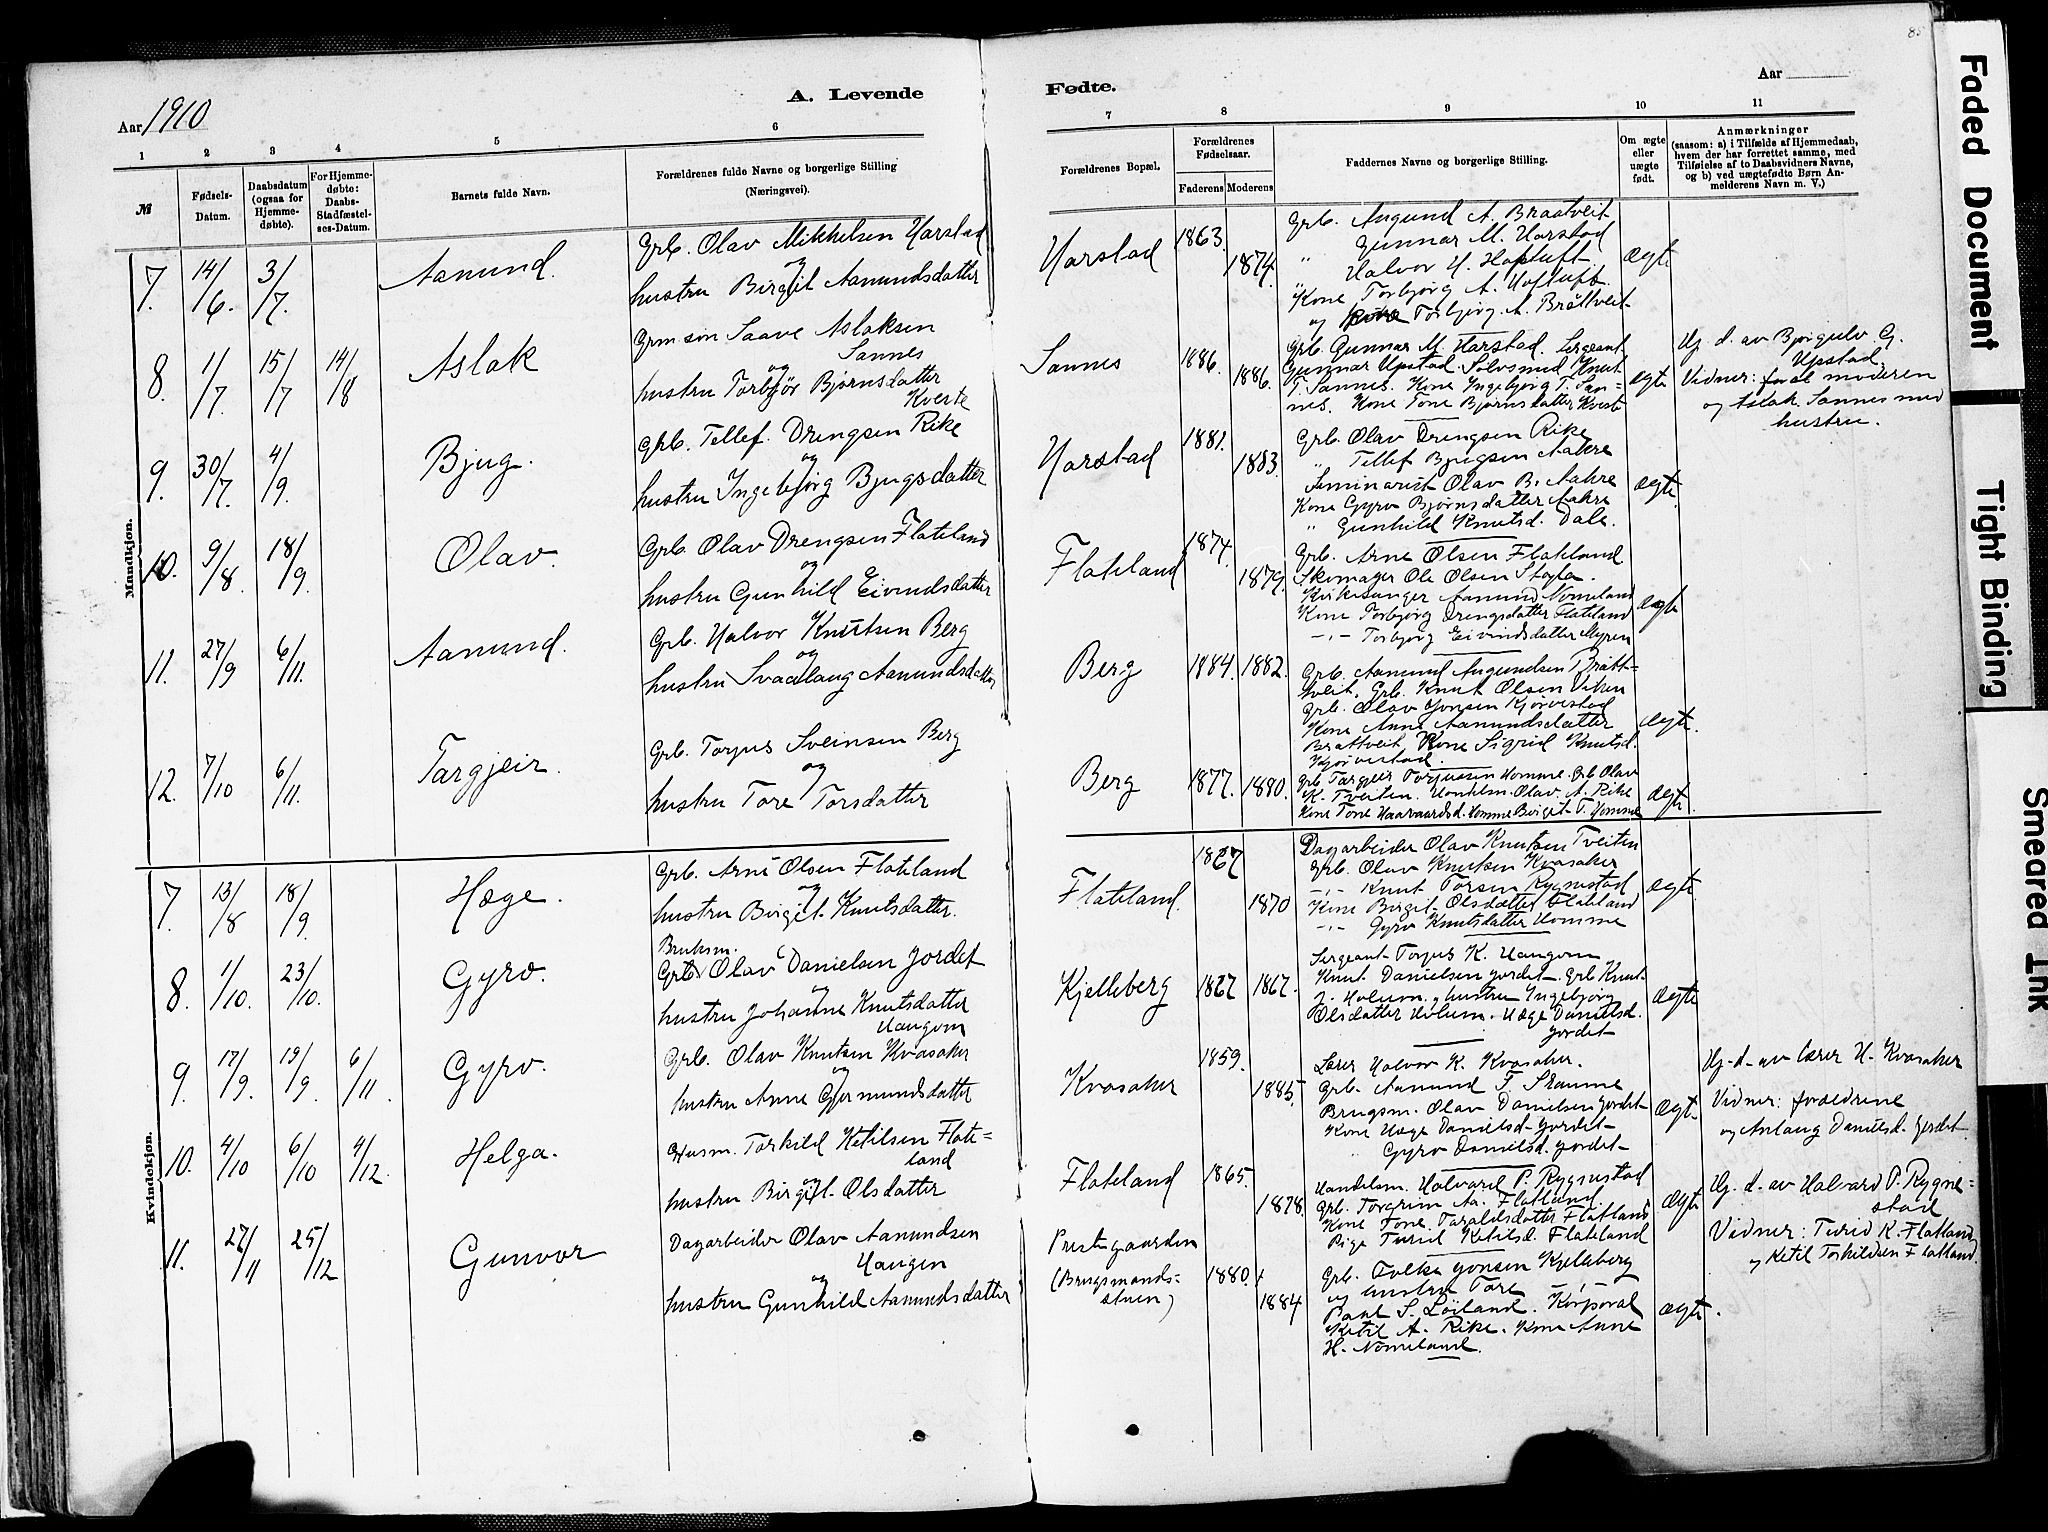 85
Aar 1910
A. Levende
Fødte.
Aar
1 2 3 4 5 6 7 8 9 10 11
№
Fødsels-Datum.
Daabsdatum (ogsaa for Hjemmedøbte).
For Hjemmedøbte: Daabs-Stadfæstelses-Datum.
Barnets fulde Navn.
Forældrenes fulde Navne og borgerlige Stilling (Næringsvei).
Forældrenes Bopæl.
Forældrenes Fødselsaar.
Faderens Moderens
Faddernes Navne og borgerlige Stilling.
Om ægte eller uægte født.
Anmærkninger (saasom: a) i Tilfælde af Hjemmedaab, hvem der har forrettet samme, med Tilføielse af to Daabsvidners Navne, og b) ved uægtefødte Børn Anmelderens Navn m. V.)
Mandkjøn.
7. 14/6. 3/7. Aanund.
Grb. Olav Mikkelsen Harstad
og
hustru Birgit Aanundsdatter
Harstad 1863. 1874.
Grb. Augund A. Braatveit
" Gunnar M. Harstad
" Halvor H. Hoftuft
Kone Torbjørg A. Hoftuft.
og Torbjørg A. Bråttveit
Ægte
8. 1/7. 15/7 14/8 Aslak
Grm søn Saave Aslaksen
Sannes
og
hustru Torbjør Bjørnsdatter
Kverte
Sannes 1886. 1886.
Grb. Gunnar M. Harstad. Sergeant
Gunnar Upstad. Sølvsmed Knut
T. Sannes. Kone Ingebjørg T. San=
nes. Kone Tone Bjørnsdatter Kverte
Ægte
Hj. d. av Bjørgulv G.
Upstad.
Vidner: moderen
og Aslak Sannes med
hustru.
9. 30/7. 4/9. Bjug.
Grb. Tellef Drengsen Rike
og
hustru Ingebjørg Bjugsdatter
Harstad 1881. 1883.
Grb. Olav Drengsen Rike
" Tellef Bjugsen Aakre
Seminarist Olav B. Aakre
Kone Gyro Bjørnsdatter Aakre
" Gunhild Knutsd. Dale.
Ægte
10. 9/8. 18/9. Olav.
Grb. Olav Drengsen Flateland
og
hustru Gunhild Eivindsdatter
Flateland 1874. 1879.
Grb. Arne Olsen Flateland
Skomager Ole Olsen
Kirkesanger Aanund Nomeland
Kone Torbjørg Drengsdatter Flateland
-,- Torbjørg Eivindsdatter Myren
Ægte
11. 27/9 6/11. Aanund.
Grb. Halvor Knutsen Berg
og
hustru Svaalaug Aanundsdatter
Berg 1884. 1882.
Grb. Aanund Augundsen Brått=
tveit. Grb. Knut Olsen Viken
Grb. Olav Jonsen Kjørvestad
Kone Anne Aanundsdatter
Brattveit Kone Sigrid Knutsd.
Kjørvestad.
Ægte.
12. 7/10 6/11. Targjeir.
Grb. Torjus Sveinsen Berg
og
hustru Tore Torsdatter
Berg 1877. 1880.
Grb. Targjeir Torjussen Homme. Grb Olav
K. Tveiten. Olav A. Rike
Kone Tone Haavaardsd. Homme Birget T. Homme
Ægte.
Kvindekjøn.
7. 13/8 18/9. Hæge.
Grb. Arne Olsen Flateland
og
hustru Birgit Knutsdatter.
Flateland. 1867 1870
Dagarbeider Olav Knutsen Tveiten
Grb. Olav Knutsen Kvasaker
-,- Knut Torsen Rygnestad
Kone Birgit Olsdatter Flateland
-,- Gyro Knutsdatter Homme
Ægte.
8. 1/10. 23/10. Gyro.
Bruksm.
Grb. Olav Danielsen Jordet
og
hustru Johanne Knutsdatter
Haugom
Kjelleberg 1867 1867.
Sergeant Torjus K. Haugom
Knut Danielsen Jordet. Grb Knut
J. Holum. hustru Ingebjørg
Olsdatter Holum. Hæge Danielsd.
Jordet
Ægte
9. 17/9. 19/9. 6/11. Gyro.
Grb. Olav Knutsen Kvasaker
og
hustru Anne Gjermundsdatter
Kvasaker 1859. 1885.
Lærer Halvor K. Kvasaker.
Grb. Aanund T. Skomme
Brugsm. Olav Danielsen Jordet
Kone Hæge Danielsd. Jordet
" Gyro Danielsd. Jordet
Ægte.
Hj. d. av lærer H. Kvasaker
Vidner: forældrene
og Anlaug Danielsd. Jordet
10. 4/10 6/10 4/12. Helga.
Husm. Torkild Ketilsen Flate=
land
og
hustru Birgit Olsdatter
Flateland 1865. 1878.
Handelsm. Halvard P. Rygnestad
Grb. Torgrim Aa. Flatland
Kone Tone Taraldsdatter Flatland
Pige Turid Ketilsd. Flateland
Ægte
Hj. d. av Halvard P. Rygne=
stad
Vidner: Turid K. Flatland
og Ketil Torkildsen Flatland.
11. 27/11 25/12 Gunvor
Dagarbeider Olav Aanundsen
Haugen
og
hustru Gunhild Aanundsdatter
Prestegaarden
(Brugsmands=
stuen)
1880. 1884
Grb. Folke Jonsen Kjelleberg
og hustru Tore -,-
Paul S. Løiland. Korporal
Ketil A. Rike. Kone Anne
H. Nomeland.
Ægte.
Faded Document
Tight Binding
Smeared Ink